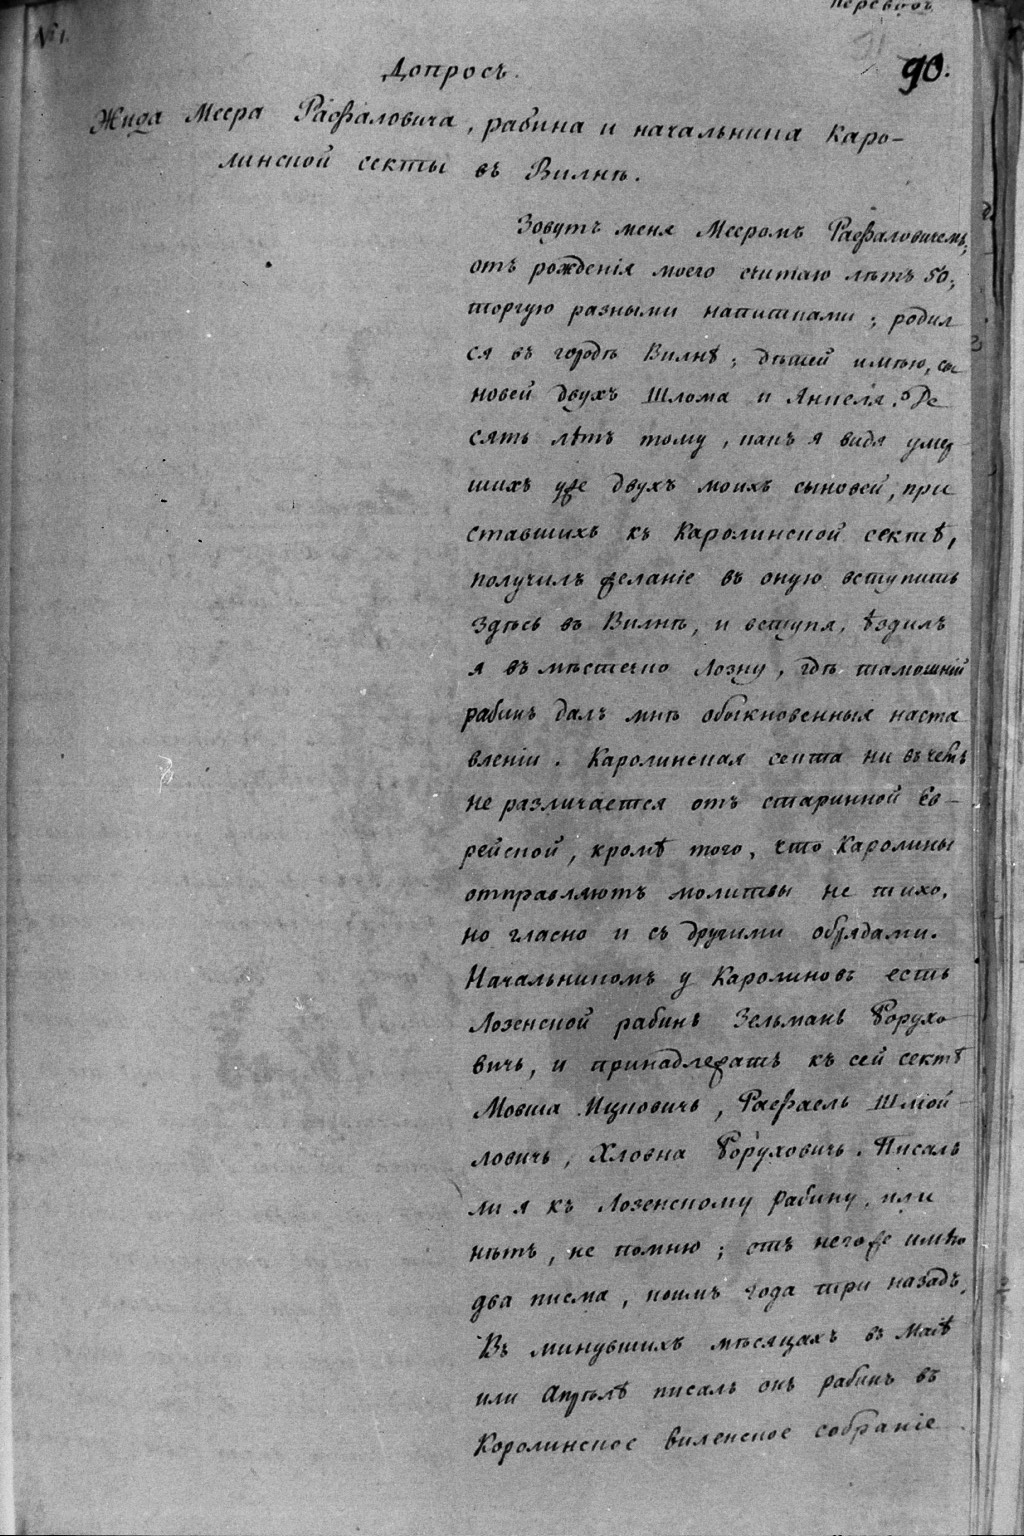 переводъ
№1.
90.
Допросъ.
Жида Меера Рафаловича, рабина и начальника Каро-
линской секты въ Вилнѣ.
Зовутъ меня Мееромъ Рафаловичемъ,
отъ рожденія моего считаю лѣтъ 50,
торгую разными напитками; родил
ся въ городѣ Вилнѣ; дѣтей имѣю, сы
новей двухъ Шлома и Анкеля. Де
сять лѣтъ тому, какъ я видя умер
шихъ уже двухъ моихъ сыновей, при
ставшихъ къ Каролинской сектѣ,
получилъ желаніе въ оную вступить
здѣсь въ Вилнѣ, и вступя, ѣздилъ
я въ мѣстечко Лозну, гдѣ тамошній
рабинъ далъ мнѣ обыкновенныя наста
вленіи. Каролинская секта ни въ чемъ
не различается отъ старинной Ев-
рейской, кромѣ того, что Каролины
отправляютъ молитвы не тихо,
но гласно и съ другими обрядами.
Начальникомъ у Каролиновъ есть
Лозенской рабинъ Зельманъ Борухо
вичь, и принадлежатъ къ сей сектѣ
Мовша Ицковичь, Рафаель Шліой-
ловичь, Хловна Боруховичь. Писалъ
ли я къ Лозенскому рабину, или
нѣтъ, не помню; отъ него же имѣю
два писма, коимъ года три назадъ.
Въ минувшихъ мѣсяцахъ въ Маіѣ
или Апрѣлѣ писалъ онъ рабинъ въ
Королинское виленское собраніе